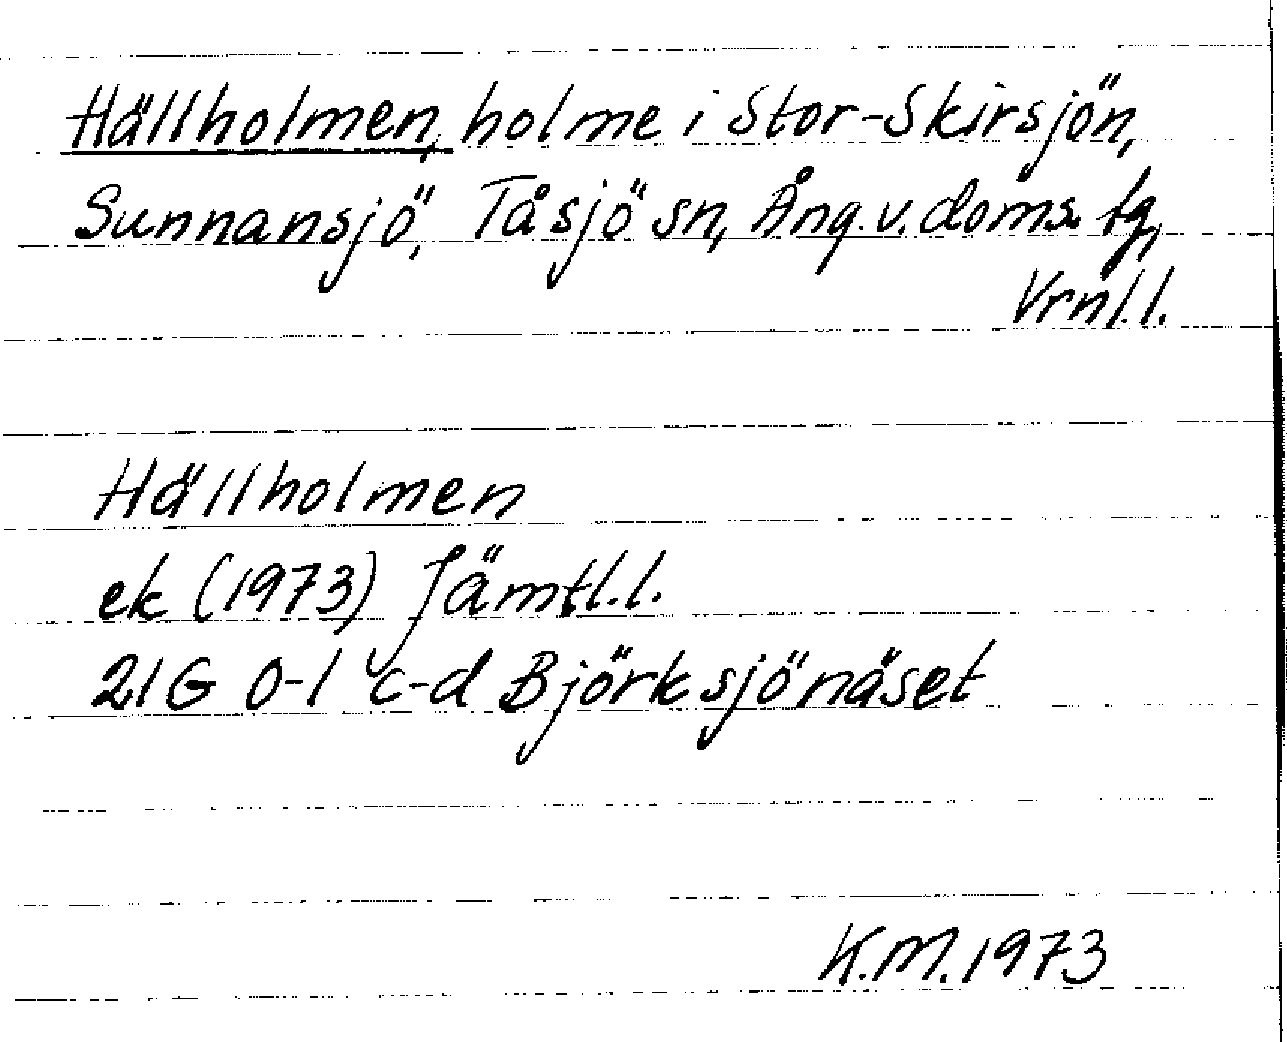 Hällholmen, holme i Stor-Skirsjön,
Sunnansjö, Tåsjö sn, Ång. v. doms. tg,
Vrnl.l.
Hällholmen
ek (1973) Jämtl.l.
21G 0-1 c-d Björksjönäset
K.M. 1973